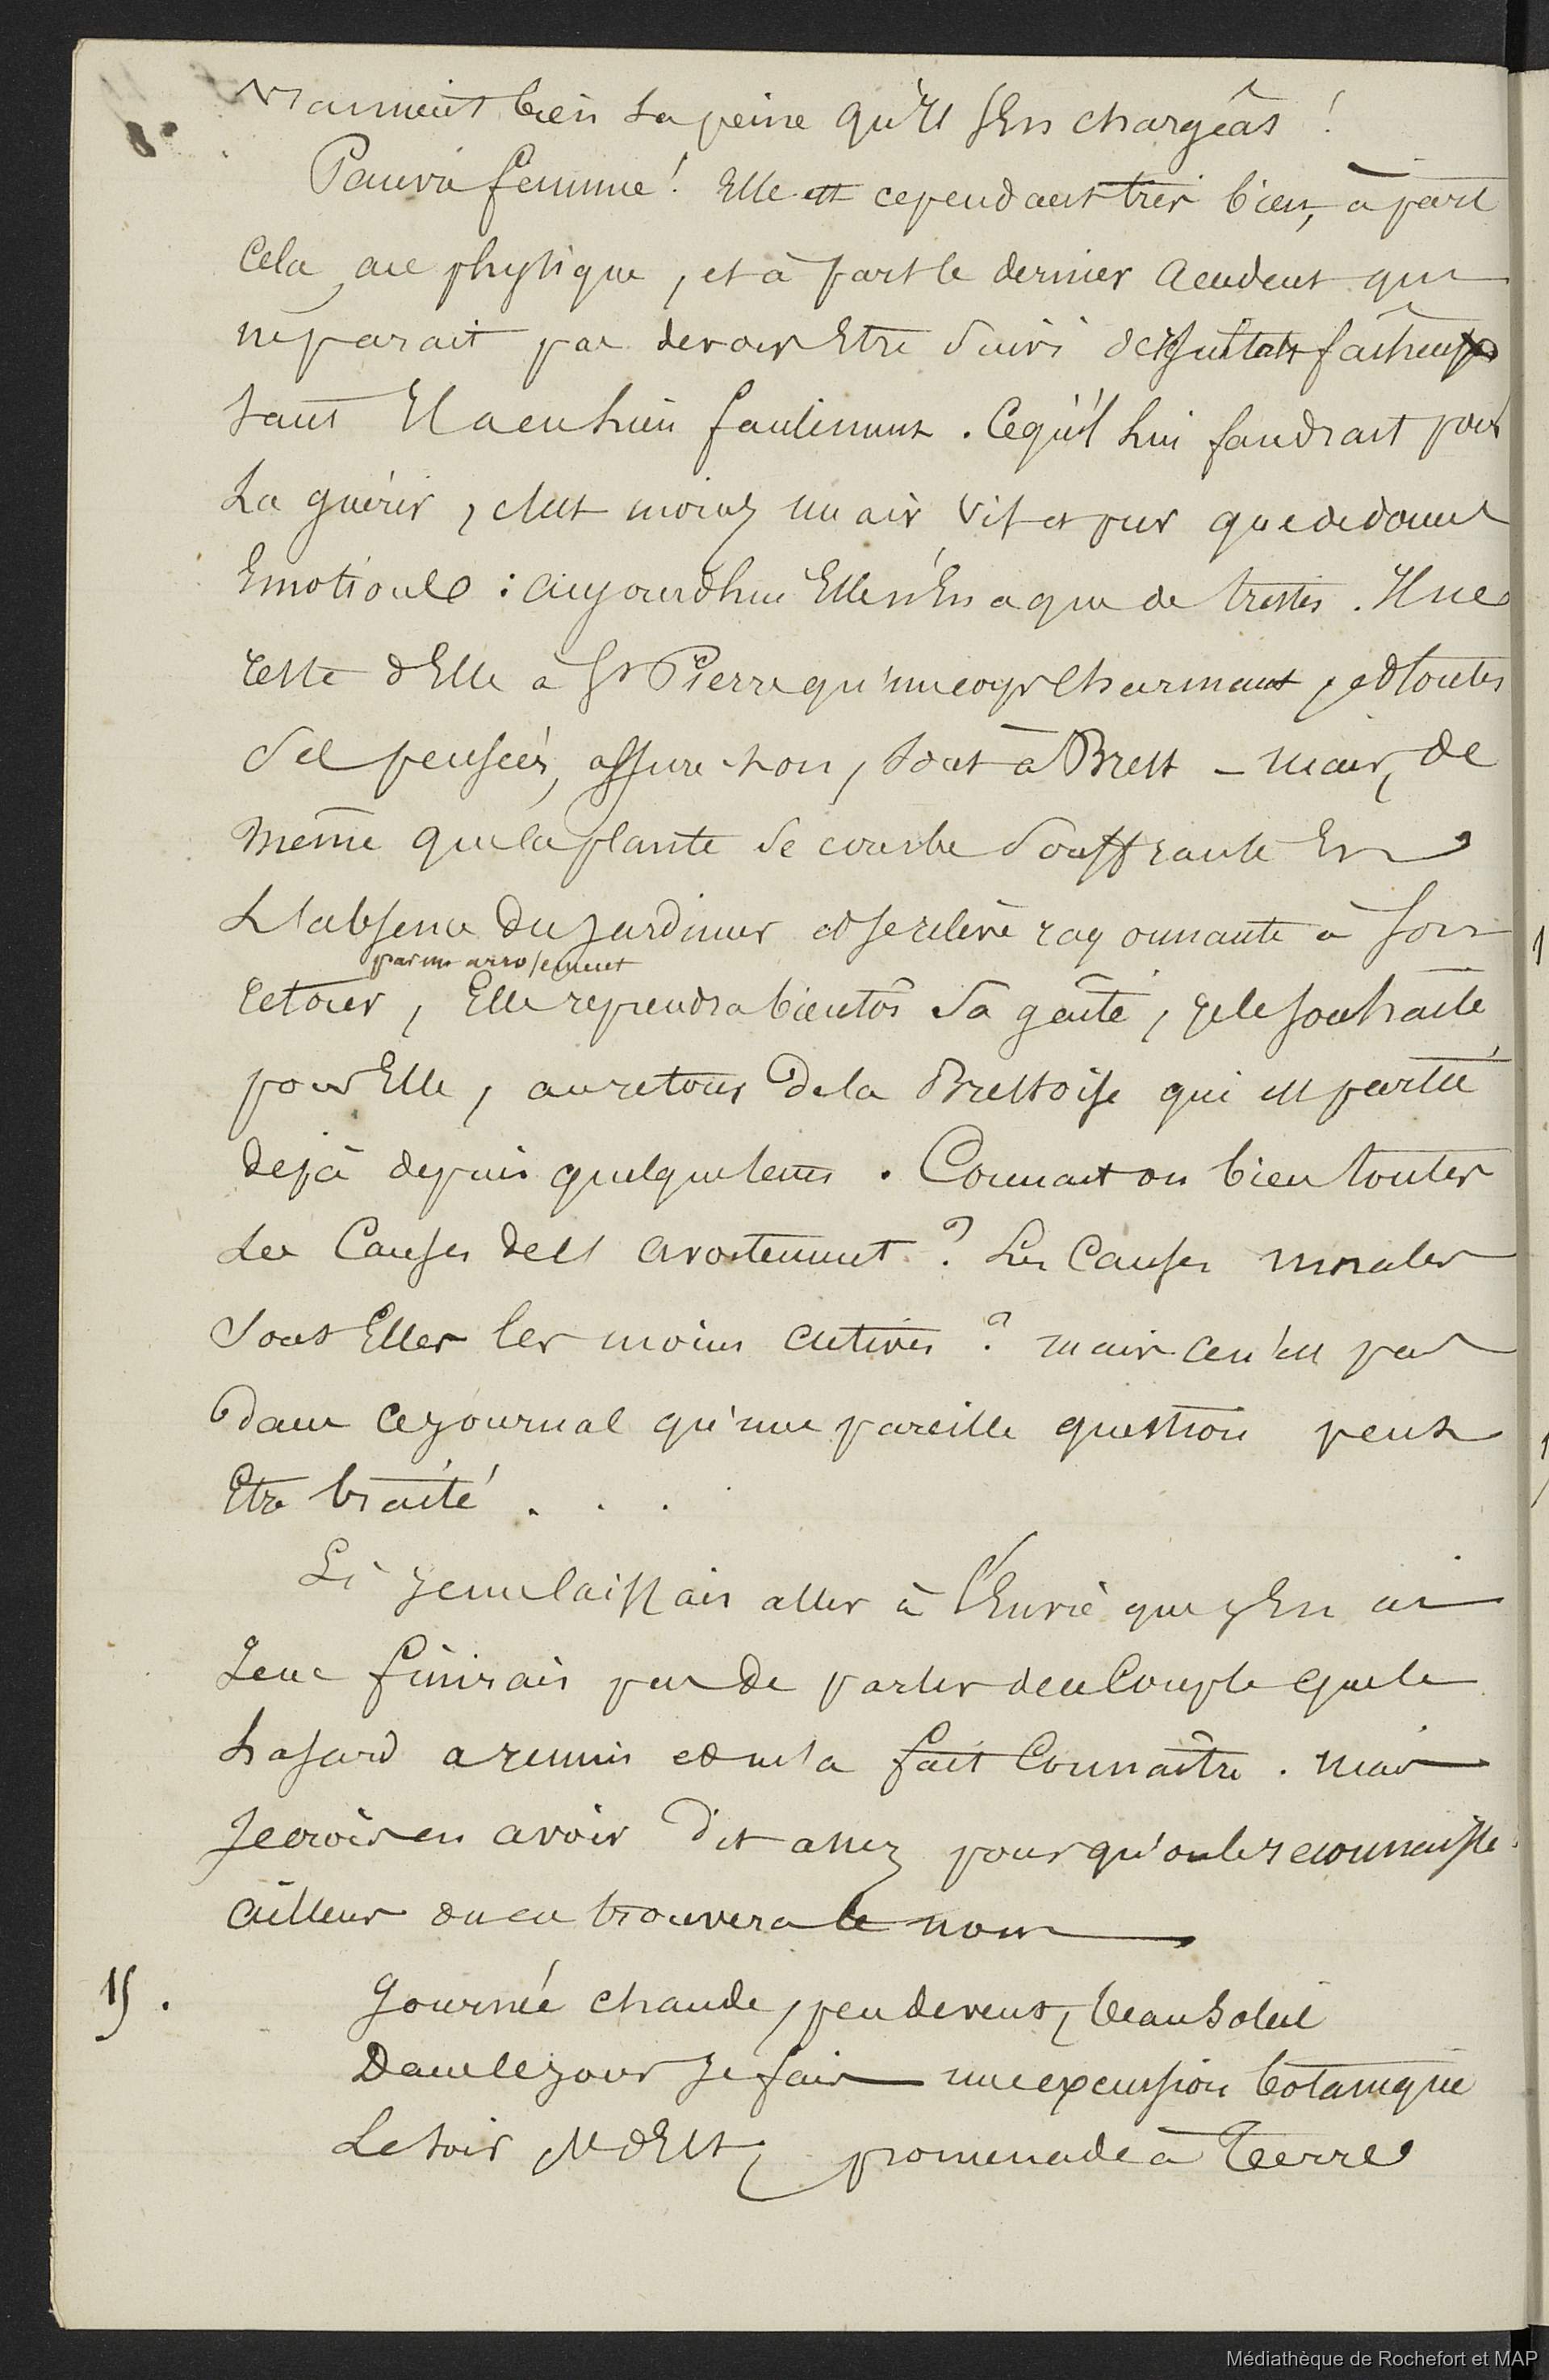 vraiment bien la peine qu'il s'en chargeât !
Pauvre femme ! Elle est cependant très bien, à part
cela, au physique, et à part le dernier accident qui
ne parait pas devoir être suivi de résultats fâcheux
tant il a eu lieu facilement. Ce qu'il lui faudrait pour
la guérir, c'est moins un air vif et pur que de douces
Emotions : aujourdhui Elle n'En a que de tristes. Il ne
reste d'Elle à St Pierre qu'un corps charmant, et toutes
ses pensées, assure-t-on, sont à Brest - mais, de
même que la plante se courbe souffrante En
l'absence du jardinier et se relève rayonnante à son
par un arrosement
retour, Elle reprendra bientôt sa gaité, je le souhaite
pour Elle, au retour de la Brestoise qui est partie
dejà depuis quelque tems. Connait on bien toutes
les causes de l'avortement ? Les causes morales
sont Elles les moins actives ? mais ce n'est pas
dans ce journal qu'une pareille question peut
Etre traité . . .
Si je me laissais aller à l'Envie que j'En ai
Je ne finirais pas de parler de ce couple que le
hasard a reunis et m'a fait connaître. mais
Je crois en avoir dit assez pour qu'on les reconnaisse
ailleurs on en trouvera le nom
15.
Journée chaude, peu de vent, beau soleil
Dans le jour Je fais une excursion botanique
Le soir promenade à terre
Médiathèque de Rochefort et MAP